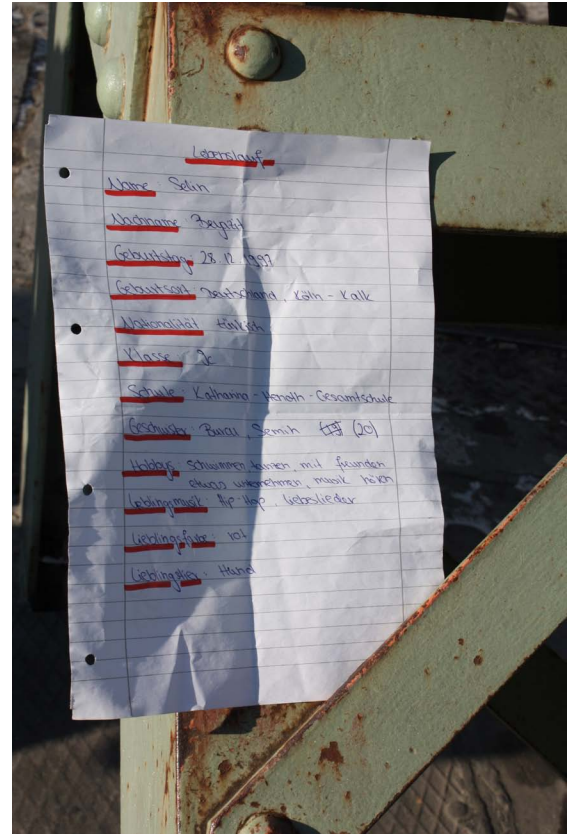 Lebenslauf
Name Selin
Nachname
Geburtstag: 28.12.1997
Geburtsort Deutschland, Köln - Kalk
Nationalität türkisch
Klasse
Schule: Katharina - Henoth - Gesamtschule
Geschwister: Burcu, Semih (20)
Hobbys: schwimmen, tanzen, mit freunden
etwas unternehmen, musik hören
Lieblingmusik: Hip-Hop, Liebeslieder
Lieblingsfarbe: rot
Lieblingstier: Hund